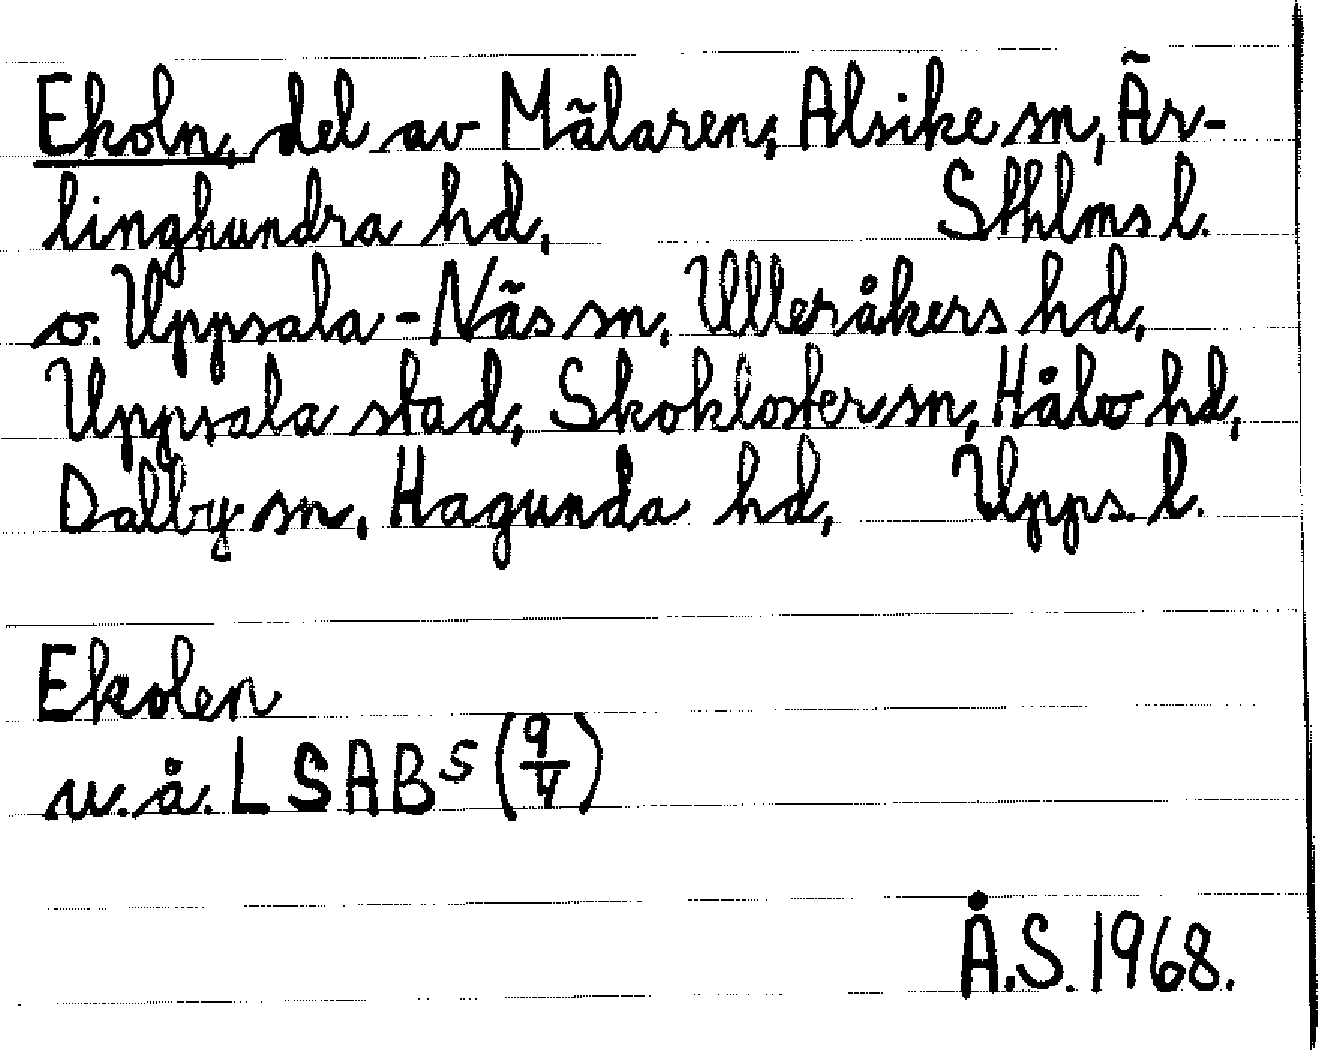 Ekoln, del av Mälaren; Alsike sn, Är-
linghundra hd, Sthlms l.
o. Uppsala-Näs sn, Ulleråkers hd,
Uppsala stad, Skokloster sn, Håbo hd,
Dalby sn, Hagunda hd, Upps. l.
Ekolen
u.å. LSAB S (9/V)
Å.S. 1968.